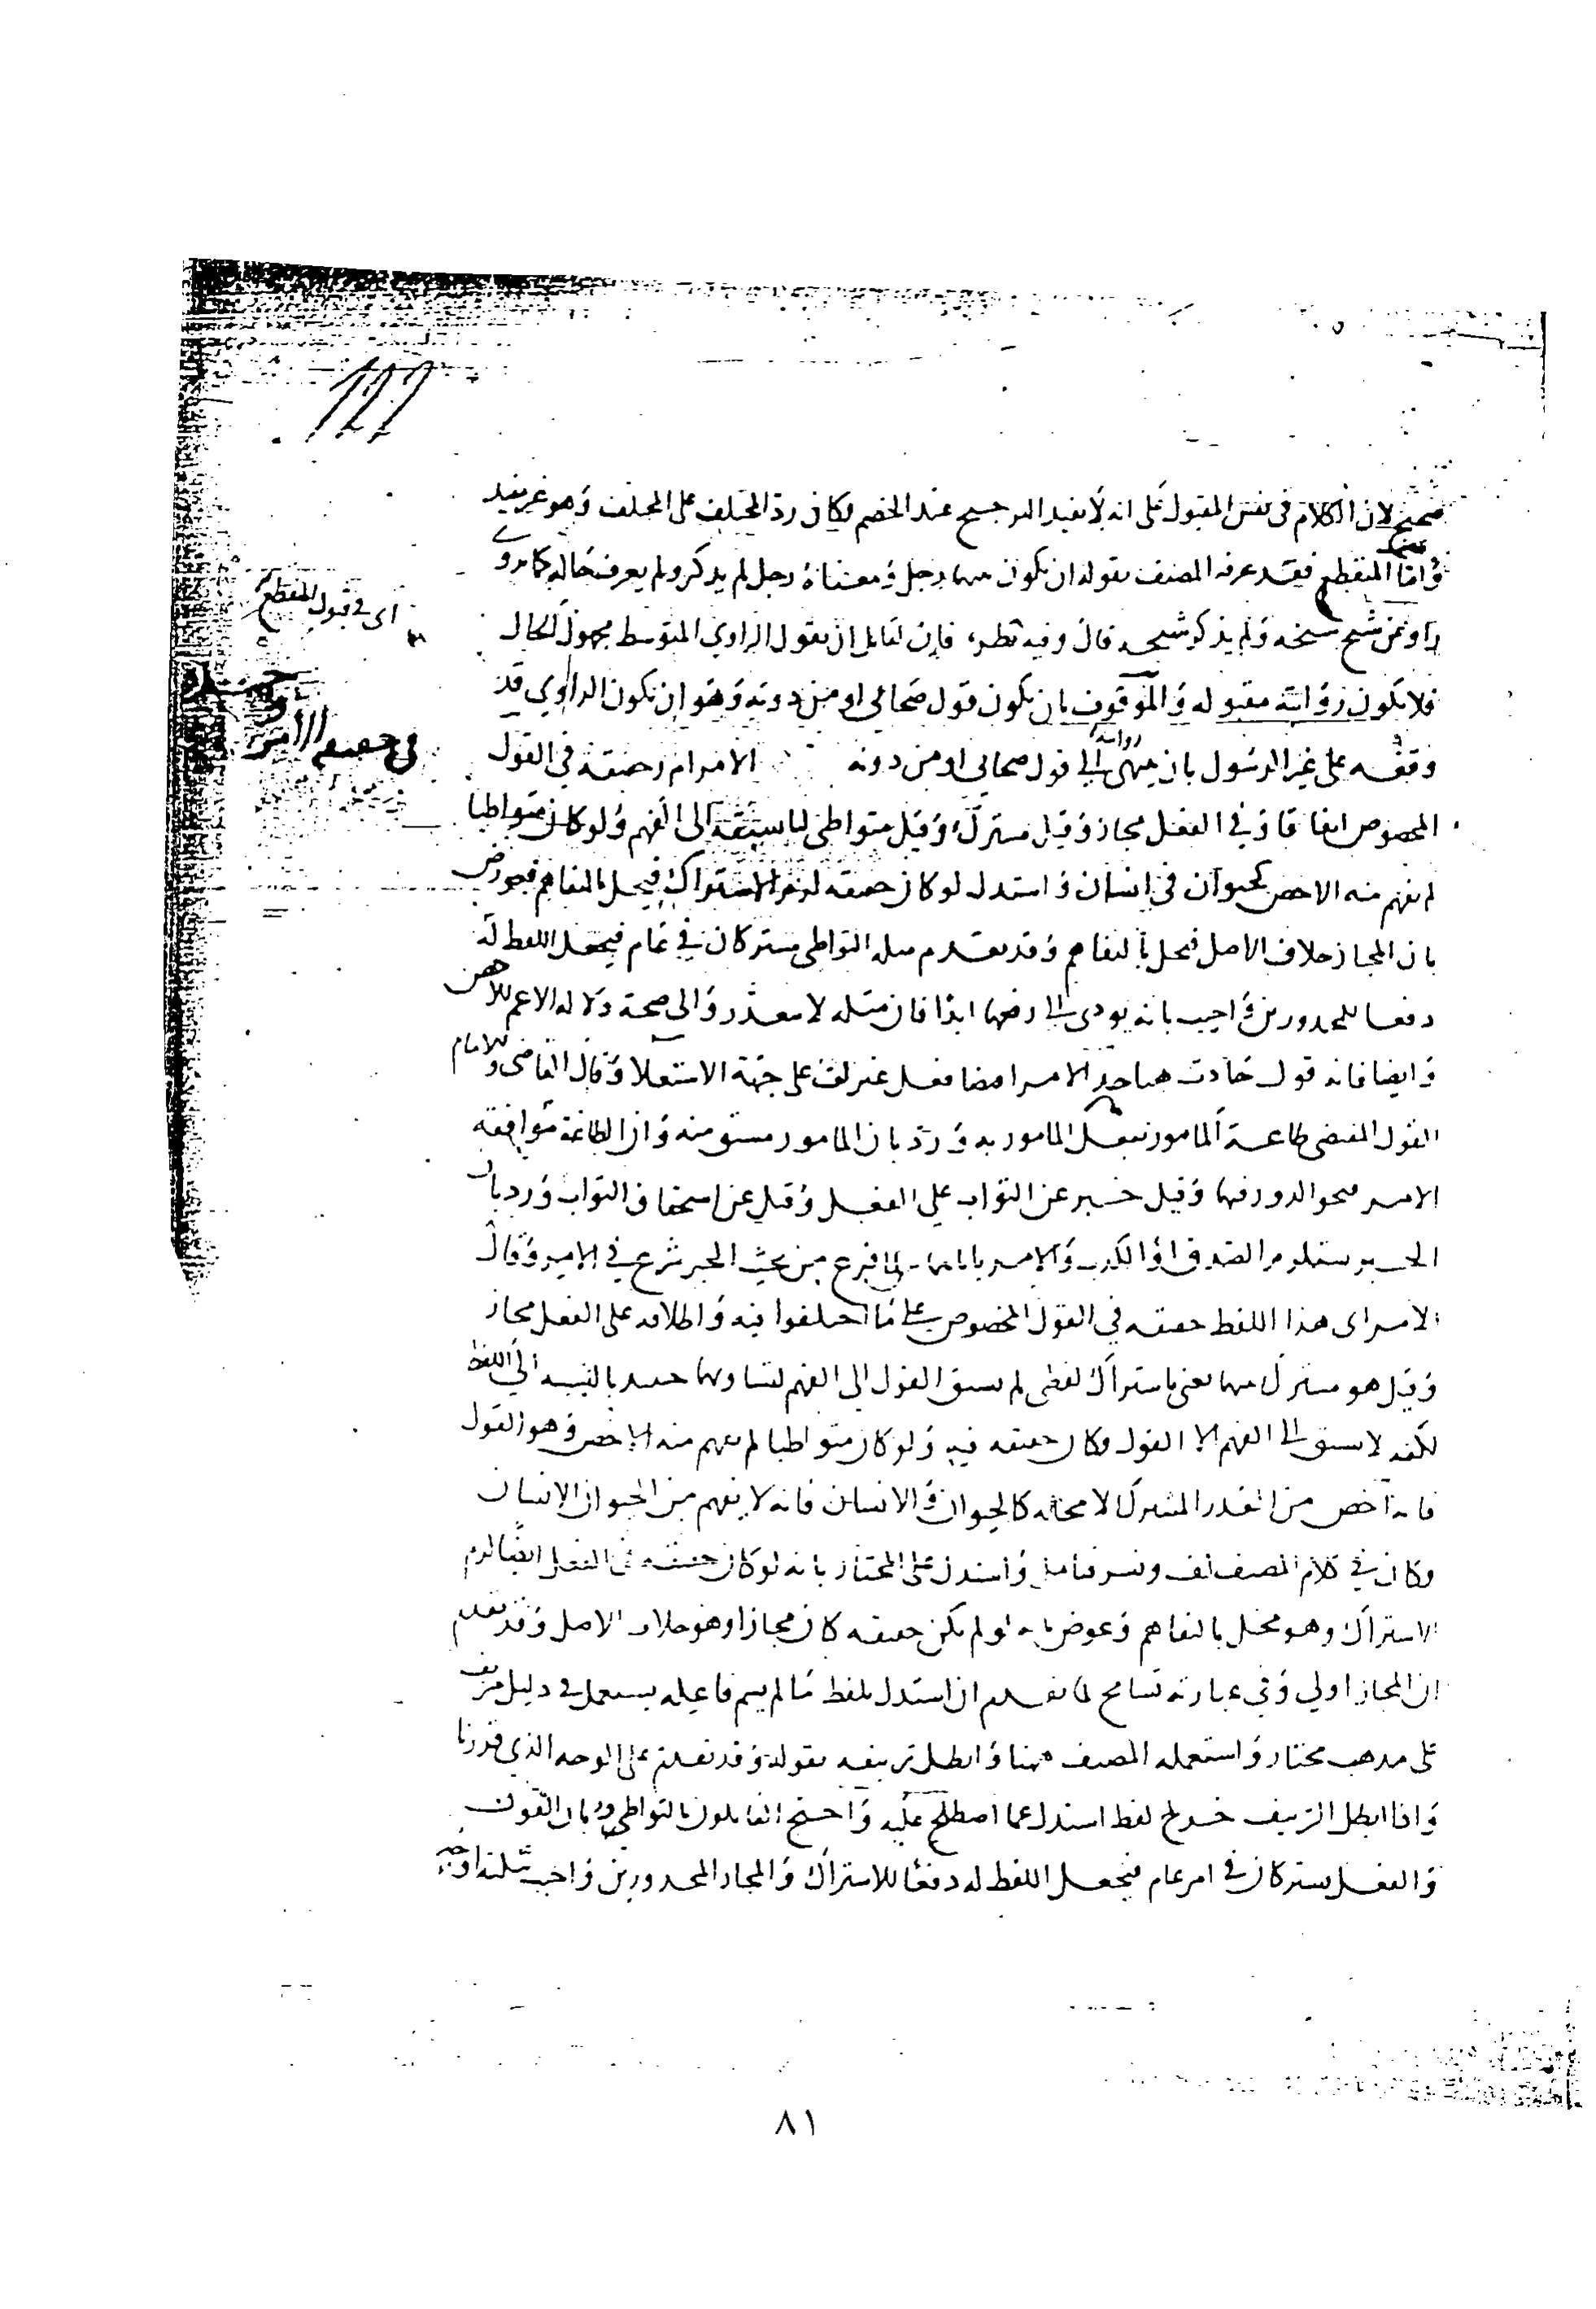 ١١٦
صحيح لان الكلام فى نفس المقبول على انه لا يفيد الترجيح عند الخصم فكان رد المختلف على المختلف وهو غير مفيد
واما المنقطع فقد عرفه المصنف بقوله ان يكون بينهما رجل وفى معناه رجل لم يذكر ولم يعرف حاله كما يروى
راو عن شيخ شيخه ولم يذكر شيخه قال وفيه نظر فان لقايل ان يقول الراوي المتوسط مجهول الحال
اى فى قبول المنقطع
فلا تكون روايته مقبوله والموقوف بان يكون قول صحابي او من دونه وهو ان يكون الراوي قد
وقفه على غير الرسول بان ينتهى روايته الى قول صحابي او من دونه الامر ام ر حقيقة في القول
فى الامر
المخصوص اتفاقا وفي الفعل مجاز وقيل مشترك وقيل متواطئ لنا سبقه الى الفهم ولو كان متواطيا
لم يفهم منه الاخص كحيوان في انسان واستدل لو كان حقيقه لزم الاشتراك فيخل بالتفاهم فعورض
بان المجاز خلاف الاصل فيخل بالتفاهم وقد تقدم مثله التواطى مشتركان في عام فيجعل اللفظ له
دفعا للمحذورين واجيب بانه يودى الى رفعهما ابدا فان مثله لا يتعذر والى صحة دلاله الاعم للاخص
وايضا فانه قول حادث هنا حد الامر اقتضا فعل غير كف على جهة الاستعلا وقال القاضى والامام
القول المقتضى طاعة المامور بفعل المامور به ورد بان المامور مشتق منه وان الطاعة موافقة
الامر فيجي الدور فيهما وقيل خبر عن الثواب على الفعل وقيل عن استحقاق الثواب ورد بان
الخبر يستلزم الصدق او الكذب والامر ياباهما لما فرغ من بحث الخبر شرع في الامر وقال
الامر اى هذا اللفظ حقيقه في القول المخصوص على ما اختلفوا فيه واطلاقه على الفعل مجاز
وقيل هو مشترك بينهما يعنى باشتراك لفظى لم يسبق القول الى الفهم لتساويهما حينيذ بالنسبه الى اللفظ
لكنه لا يسبق الى الفهم الا القول فكان حقيقه فيه ولو كان متواطيا لم يفهم منه الاخص وهو القول
فانه اخص من القدر المشترك لا محاله كالحيوان في الانسان فانه لا يفهم من الحيوان الانسان
وكان في كلام المصنف لف ونشر فتامل واستدل على المختار بانه لو كان حقيقه فى الفعل ايضا لزم
الاشتراك وهو مخل بالتفاهم وعورض بانه لو لم يكن حقيقه كان مجازا وهو خلاف الاصل وقد تقدم
ان المجاز اولى وفي عبارته تسامح لما تقدم ان استدل بلفظ ما لم يسم فاعله يستعمل فى دليل مزيف
على مذهب مختار واستعمله المصنف ههنا وابطل تزييفه بقوله وقد تقدم على الوجه الذي قررنا
واذا ابطل التزييف خرج لفظ استدل عما اصطلح عليه واحتج القايلون بالتواطى بان القول
والفعل يشتركان في امر عام فيجعل اللفظ له دفعا للاشتراك والمجاز المحذورين واجيب بثلثه اوجه
٨١